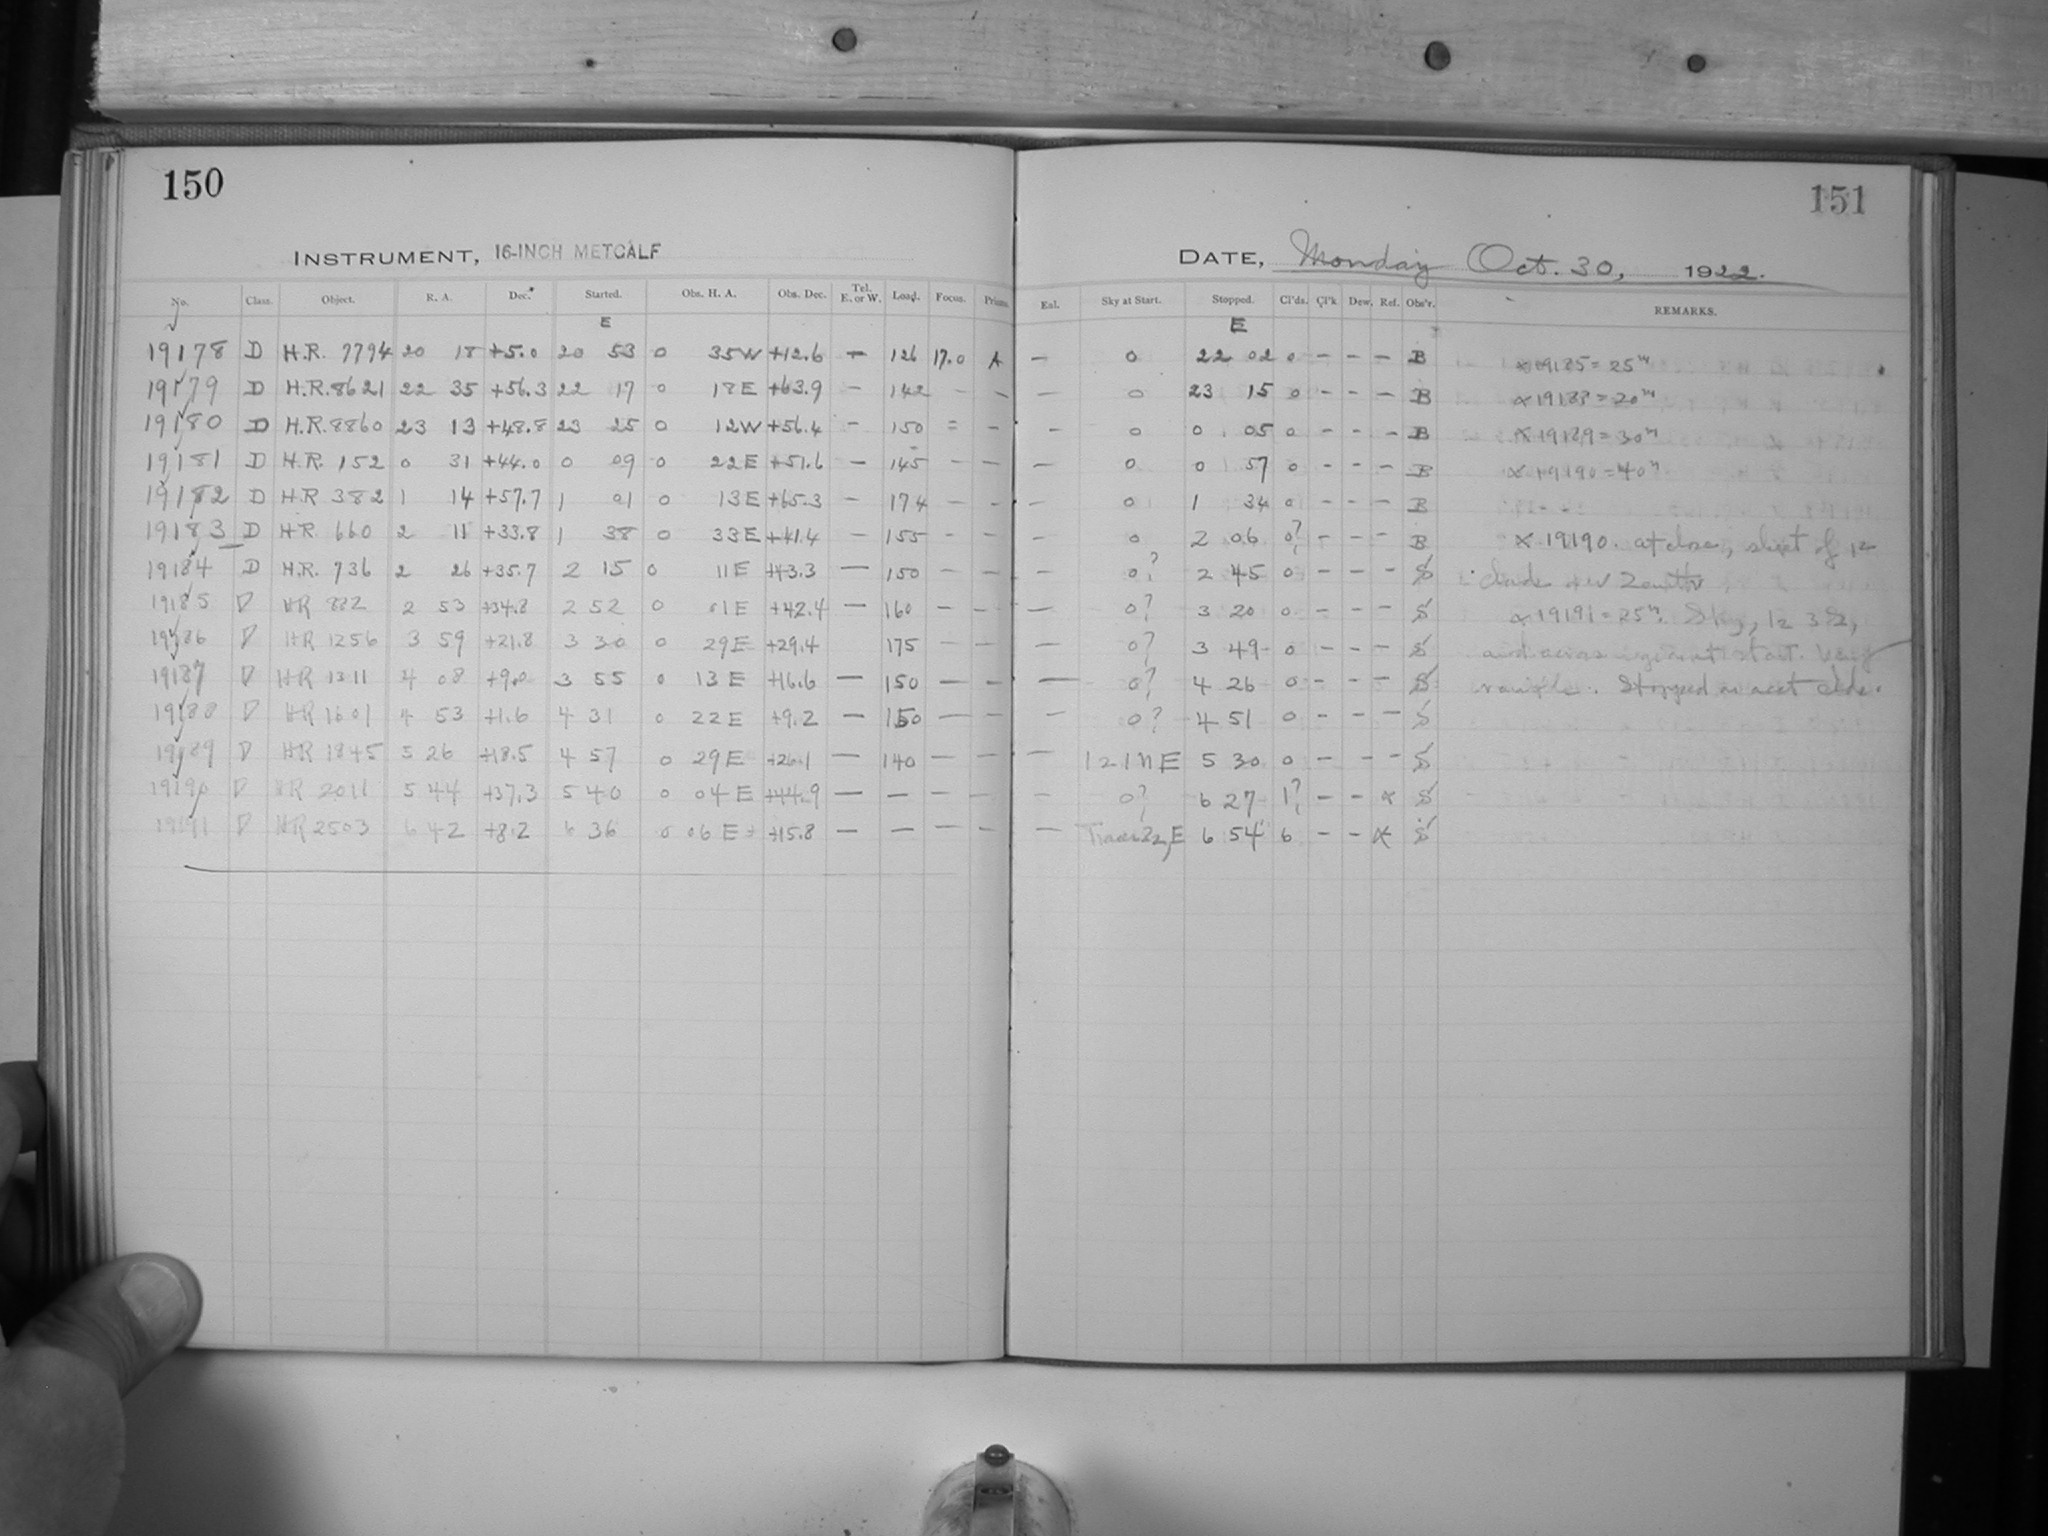 150
INSTRUMENT, 16-INCH METCALF
No. Class. Object. R. A. Dec. Started. Obs. H. A. Obs. Dec. Tel. E. or W. Load. Focus. Prism.
E
19178 D H.R. 7794 20 18 +5.0 20 53 0 35W +12.6 — 126 17.0 A
19179 D H.R. 8621 22 35 +56.3 22 17 0 18E +63.9 - 142 - -
19180 D H.R. 8860 23 13 +48.8 23 25 0 12W +56.4 - 150 = -
19181 D H.R. 152 0 31 +44.0 0 09 0 22E +51.6 - 145 - -
19182 D H.R. 382 1 14 +57.7 1 01 0 13E +65.3 - 174 - -
19183 D H.R. 660 2 11 +33.8 1 38 0 33E +41.4 - 155 - -
19184 D H.R. 736 2 26 +35.7 2 15 0 11E +43.3 — 150 - -
19185 D HR 882 2 53 +34.8 2 52 0 01E +42.4 — 160 - -
19186 D HR 1256 3 59 +21.8 3 30 0 29E +29.4 175 - -
19187 D HR 1311 4 08 +9.0 3 55 0 13E +16.6 — 150 — —
19188 D HR 1601 4 53 +1.6 4 31 0 22E +9.2 — 150 — —
19189 D HR 1845 5 26 +18.5 4 57 0 29E +26.1 — 140 — —
19190 D HR 2011 5 44 +37.3 5 40 0 04E +44.9 — — — —
19191 D HR 2503 6 42 +8.2 6 36 0 06E +15.8 — — — —
151
DATE, Monday Oct. 30, 1922.
Eal. Sky at Start. Stopped. Cl'ds. Cl'k Dew. Ref. Obs'r. REMARKS.
E
— 0 22 02 0 - - - B x 19185 = 25m
— 0 23 15 0 - - - B x 19188 = 20m
- 0 0 05 0 - - - B x 19189 = 30m
— 0 0 57 0 - - - B x 19190 = 40m
- 0 1 34 0 - - - B
- 0 2 06 0? - - - B x 19190. at close, sheet of 12
- 0? 2 45 0 - - - S clouds over Zenith
— 0? 3 20 0 - - - S x 19191 = 25m. Sky, 12 3 S2,
— 0? 3 49 0 - - - S and start. Very
— 0? 4 26 0 - - - S Stopped on acct clds.
- 0? 4 51 0 - - - S
— 12 in E 5 30 0 - - - S
- 0? 6 27 1? - - x S
— E 6 54 6 - - x S